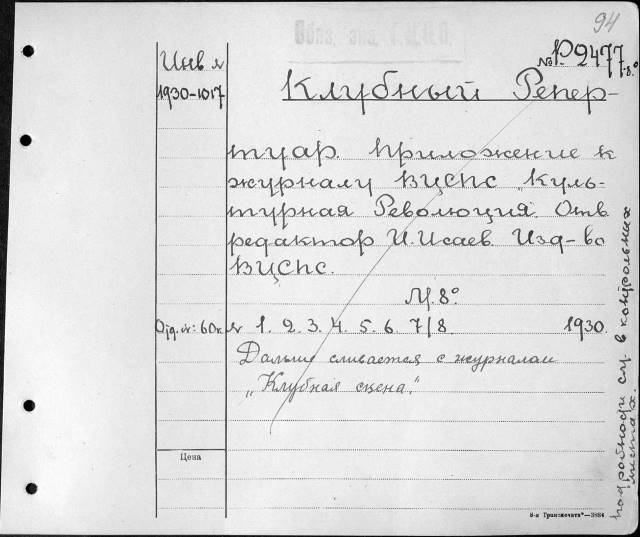 94
Обяз. экз. Г.Ц.К.П.
Инв №
1930-1017
№ P. 2477 8.°
Клубный Репер-
туар. Приложение к
журналу ВЦСПС „Куль-
турная Революция. Отв.
редактор И. Исаев. Изд-во
ВЦСПС.
М. 8°
№ 1. 2. 3. 4. 5. 6. 7/8. 1930.
Дальше сливается с журналом
„Клубная сцена."
подробности см. в контрольных
листах
Цена
8-я „Транспечать"—3884